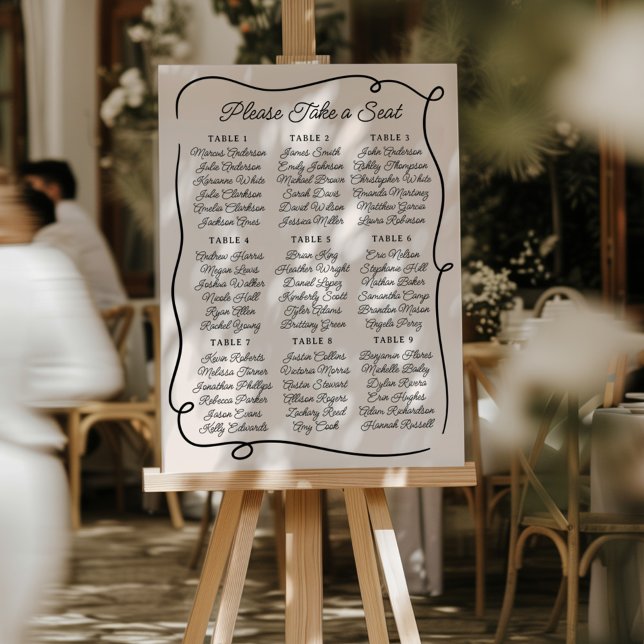 Please Take a Seat
TABLE 1
Marcus Anderson
Julie Anderson
Karanne White
Julie Clarkson
Amelia Clarkson
Jackson Ames
TABLE 2
James Smith
Emily Johnson
Michael Brown
Sarah Davis
David Wilson
Jessica Miller
TABLE 3
John Anderson
Ashley Thompson
Christopher White
Amanda Martinez
Matthew Garcia
Laura Robinson
TABLE 4
Andrew Harris
Megan Lewis
Joshua Walker
Nicole Hall
Ryan Allen
Rachel Young
TABLE 5
Brian King
Heather Wright
Daniel Lopez
Kimberly Scott
Tyler Adams
Brittany Green
TABLE 6
Eric Nelson
Stephanie Hill
Nathan Baker
Samantha Camp
Brandon Mason
Angela Perez
TABLE 7
Kevin Roberts
Melissa Turner
Jonathan Phillips
Rebecca Parker
Jason Evans
Kelly Edwards
TABLE 8
Justin Collins
Victoria Morris
Austin Stewart
Allison Rogers
Zachary Reed
Amy Cook
TABLE 9
Benjamin Flores
Michelle Bailey
Dylan Rivera
Erin Hughes
Adam Richardson
Hannah Russell